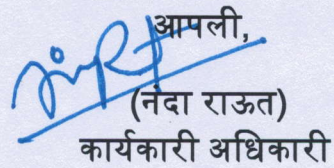 आपली,
(नंदा राऊत)
कार्यकारी अधिकारी